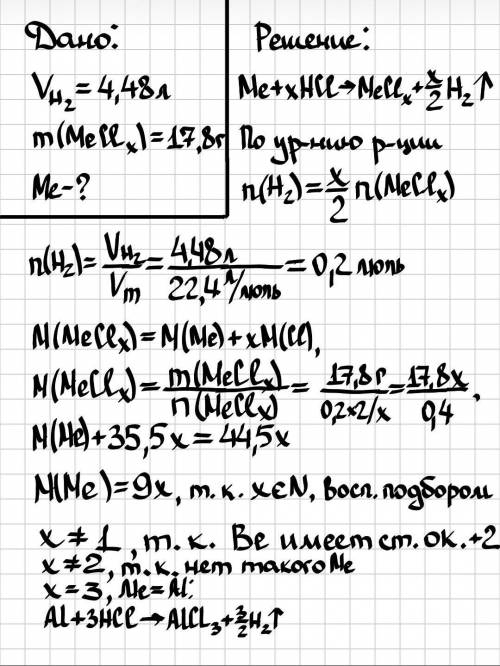 Дано:
V_H₂ = 4,48л
m(MeClₓ) = 17,8г
Me - ?
Решение:
Me + xHCl → MeClₓ + x/2 H₂↑
По ур-нию р-ции
n(H₂) = x/2 n(MeClₓ)
n(H₂) = V_H₂/Vm = 4,48л/22,4л/моль = 0,2 моль
M(MeClₓ) = M(Me) + xM(Cl),
M(MeClₓ) = m(MeClₓ)/n(MeClₓ) = 17,8г/0,2×2/x = 17,8x/0,4,
M(Me) + 35,5x = 44,5x
M(Me) = 9x, т.к. x∈N, восп. подбором
x ≠ 1, т.к. Be имеет ст. ок. +2
x ≠ 2, т.к. нет такого Me
x = 3, Me = Al:
Al + 3HCl → AlCl₃ + 3/2 H₂↑